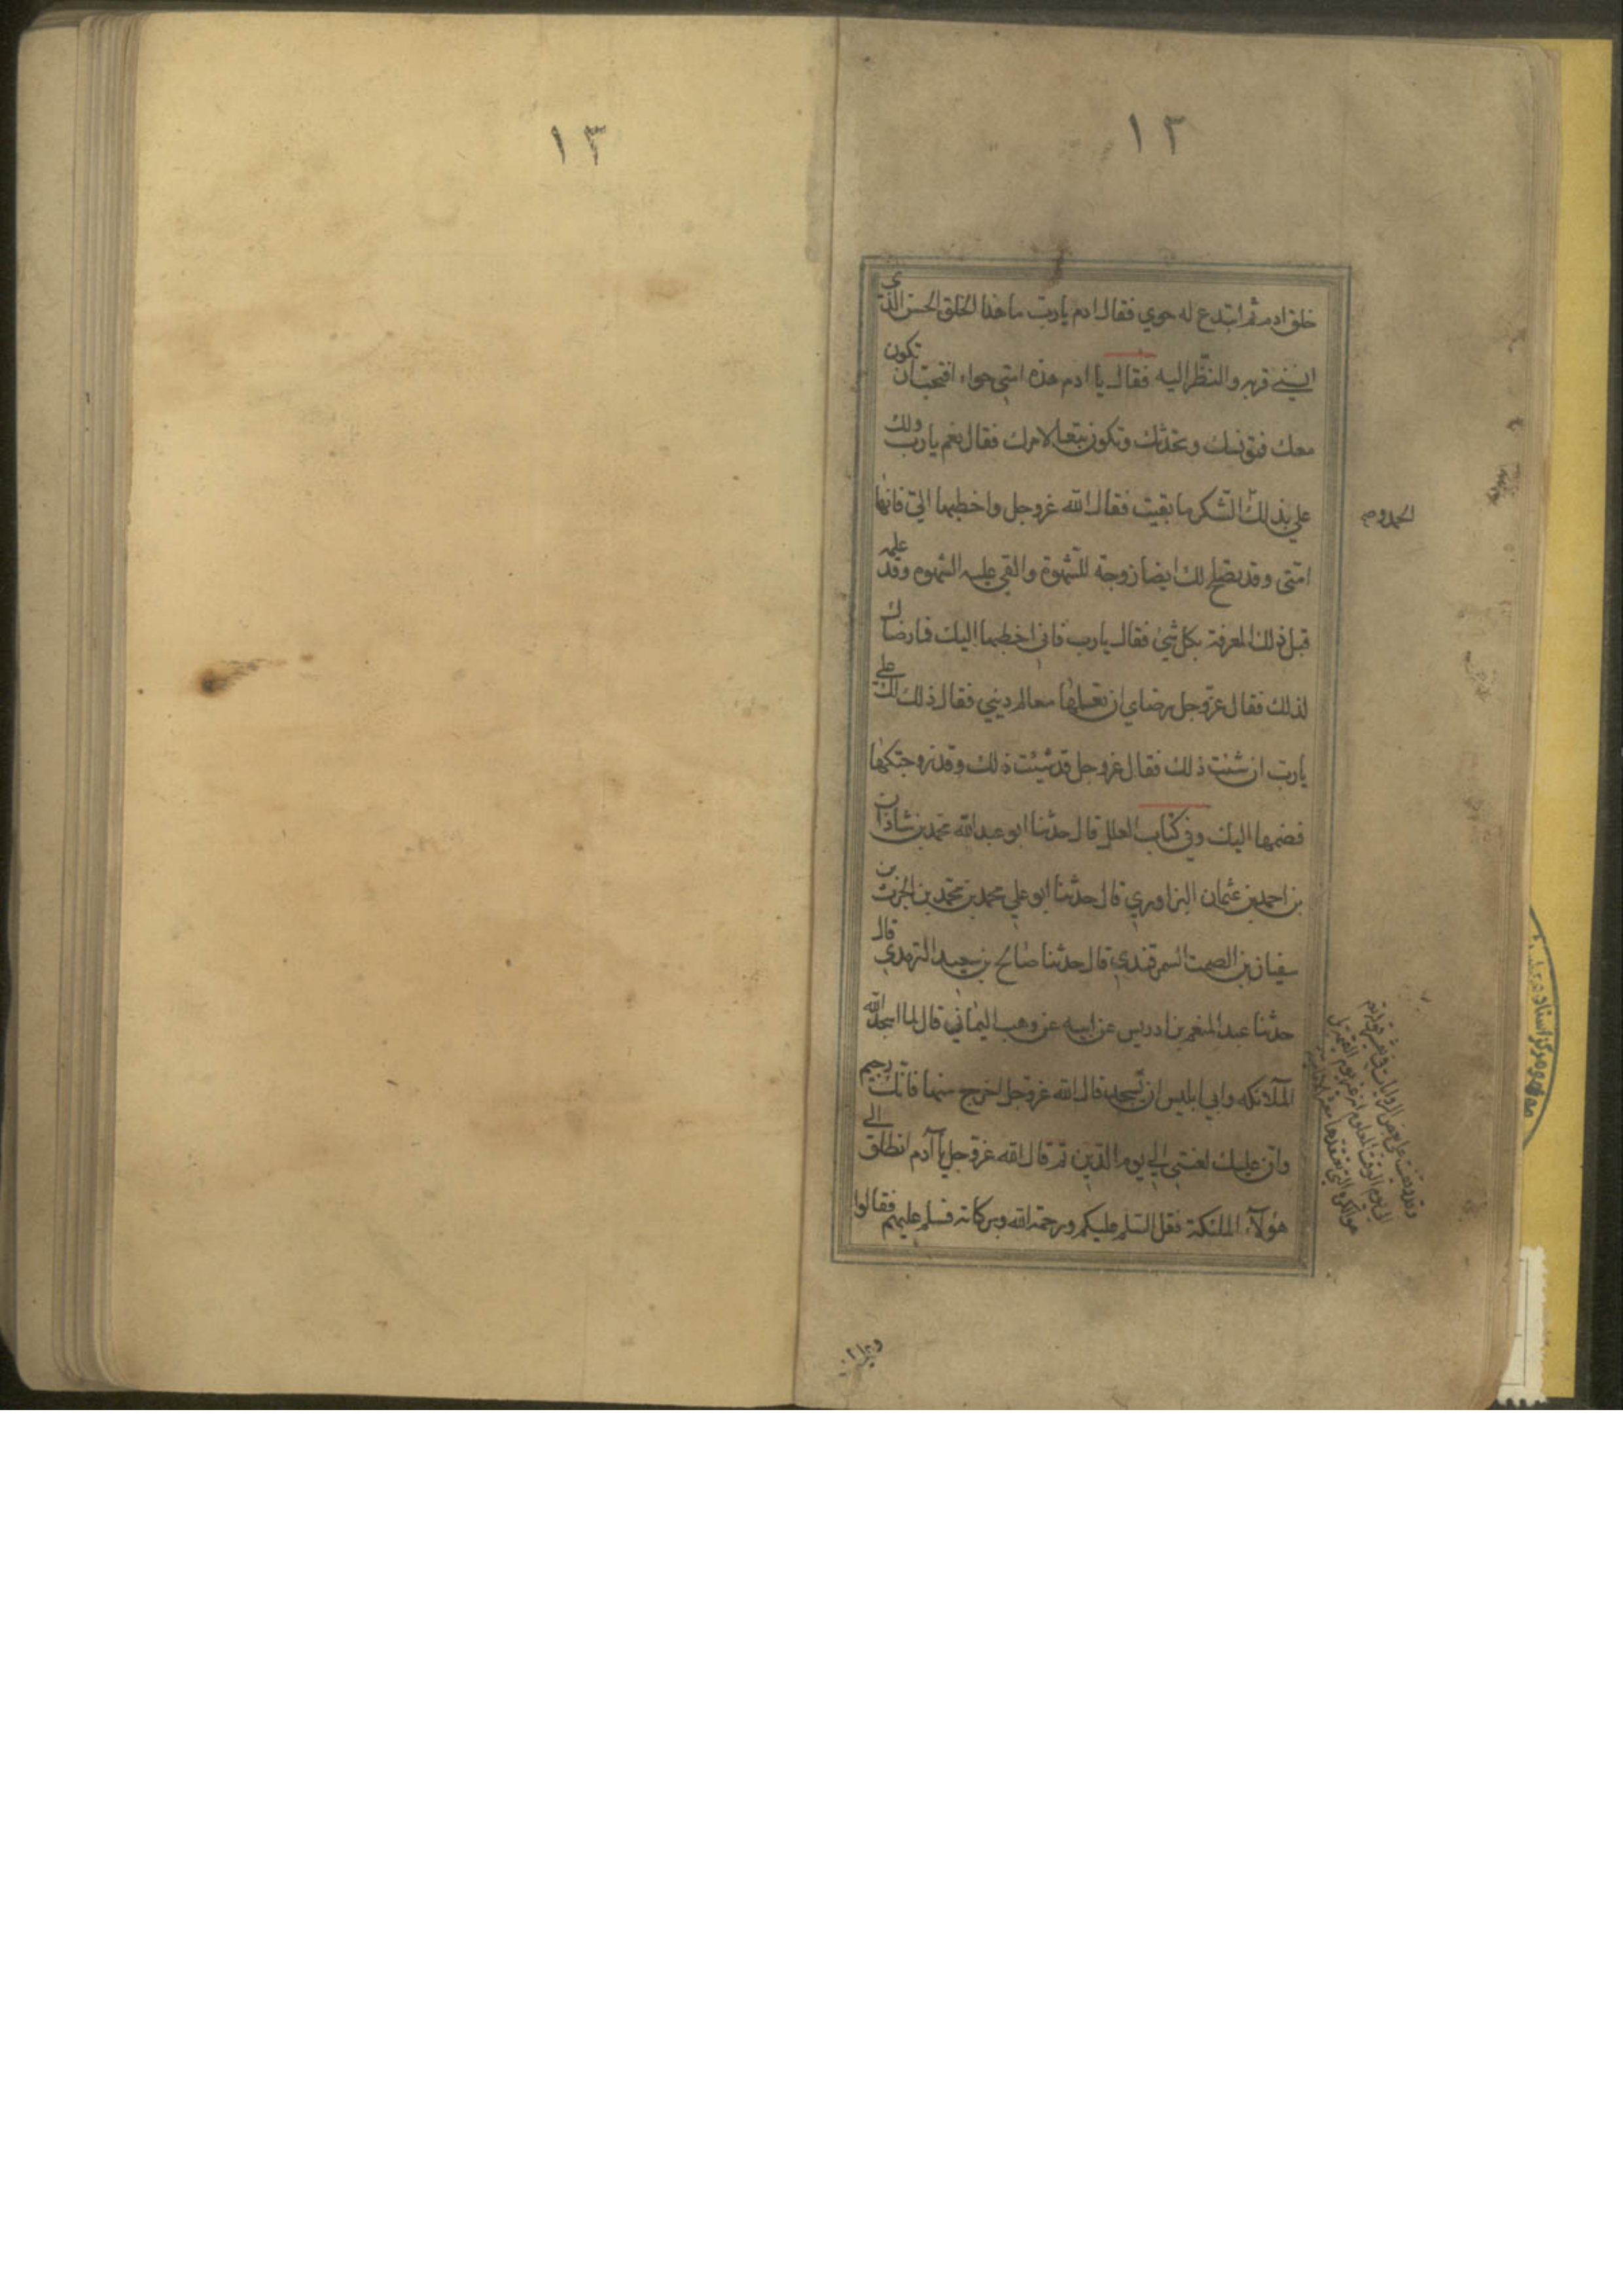 ١٣
١٣
خلق ادم ثم ابتدع له حوي فقال ادم يا رب ما هذا الخلق الحسن الذي
انسني قربه والنظر اليه فقال يا ادم هذه امتي حواء افتحب ان تكون
معك فتونسك وتحدثك وتكون تبعا لامرك فقال نعم يا رب ولك
علي بذلك الشكر ما بقيت فقال الله عز وجل واخطبها الي فانها
الحمد و صح
امتي وقد تصلح لك ايضا زوجة للشهوة والقي عليه الشهوه وقد علمه
قبل ذلك المعرفة بكل شيء فقال يا رب فاني اخطبها اليك فما رضاك
لذلك فقال عز وجل رضاي ان تعلمها معالم ديني فقال ذلك لك علي
يا رب ان شئت ذلك فقال عز وجل قد شيئت ذلك وقد زوجتكها
فضمها اليك وفي كتاب العلل قال حدثنا ابو عبد الله محمد بن شاذان
بن احمد بن عثمان البزاوري قال حدثنا ابو علي محمد بن محمد بن الحرث بن
سفيان بن الصمت السمرقندي قال حدثنا صالح بن سعيد الترمدي قال
حدثنا عبد المنعم بن ادريس عن ابيه عن وهب اليماني قال لما اسجد الله
الملائكه وابي ابليس ان يسجد قال الله عز وجل اخرج منها فانك رجيم
وان عليك لعنتي الي يوم الدين ثم قال الله عز وجل يا آدم انطلق الي
هؤلآء الملئكة فقل السلم عليكم ورحمة الله وبركاته فسلم عليهم فقالوا